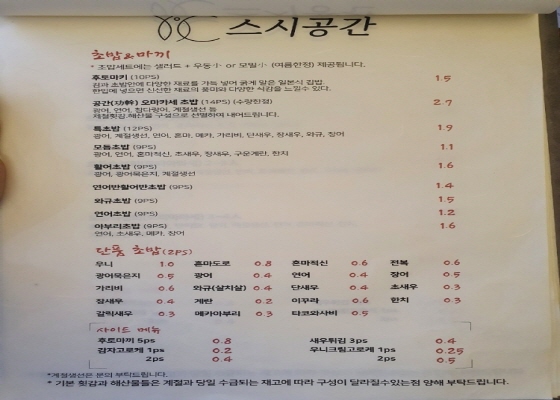 스시공간
초밥&마끼
* 초밥세트에는 샐러드 + 우동小 or 모밀小 (여름한정) 제공됩니다.
후토마키 (10PS) 1.5
김과 초밥안에 다양한 재료를 가득 넣어 굵게 말은 일본식 김밥.
한입에 넣으면 신선한 재료의 풍미와 다양한 식감을 느낄수 있다.
공간(功幹) 오마카세 초밥 (14PS) (수량한정) 2.7
광어, 연어, 참다랑어, 계절생선, 단새우 등
제철횟감 해산물 구성으로 선별하여 내어드립니다.
특초밥 (12PS) 1.9
광어, 계절생선, 연어, 혼마, 메카, 가리비, 단새우, 장새우, 와규, 장어
모듬초밥 (9PS) 1.1
광어, 연어, 혼마적신, 초새우, 장새우, 구운계란, 한치
활어초밥 (9PS) 1.6
광어, 광어묵은지, 계절생선
연어반활어반초밥 (9PS) 1.4
와규초밥 (9PS) 1.5
연어초밥 (9PS) 1.2
아부리초밥 (9PS) 1.6
연어, 초새우, 메카, 장어
단품 초밥(2PS)
우니 1.0 혼마도로 0.8 혼마적신 0.6 전복 0.6
광어묵은지 0.5 광어 0.4 연어 0.4 장어 0.5
가리비 0.6 와규(살치살) 0.4 단새우 0.4 초새우 0.3
장새우 0.4 계란 0.2 이꾸라 0.6 한치 0.3
갈릭새우 0.3 메카아부리 0.3 타코와사비 0.5
사이드 메뉴
후토마끼 5ps 0.8 새우튀김 3ps 0.4
감자고로케 1ps 0.2 우니크림고로케 1ps 0.25
2ps 0.4 2ps 0.5
*계절생선은 문의 부탁드립니다.
* 기본 횟감과 해산물들은 계절과 당일 수급되는 재고에 따라 구성이 달라질수있는점 양해 부탁드립니다.